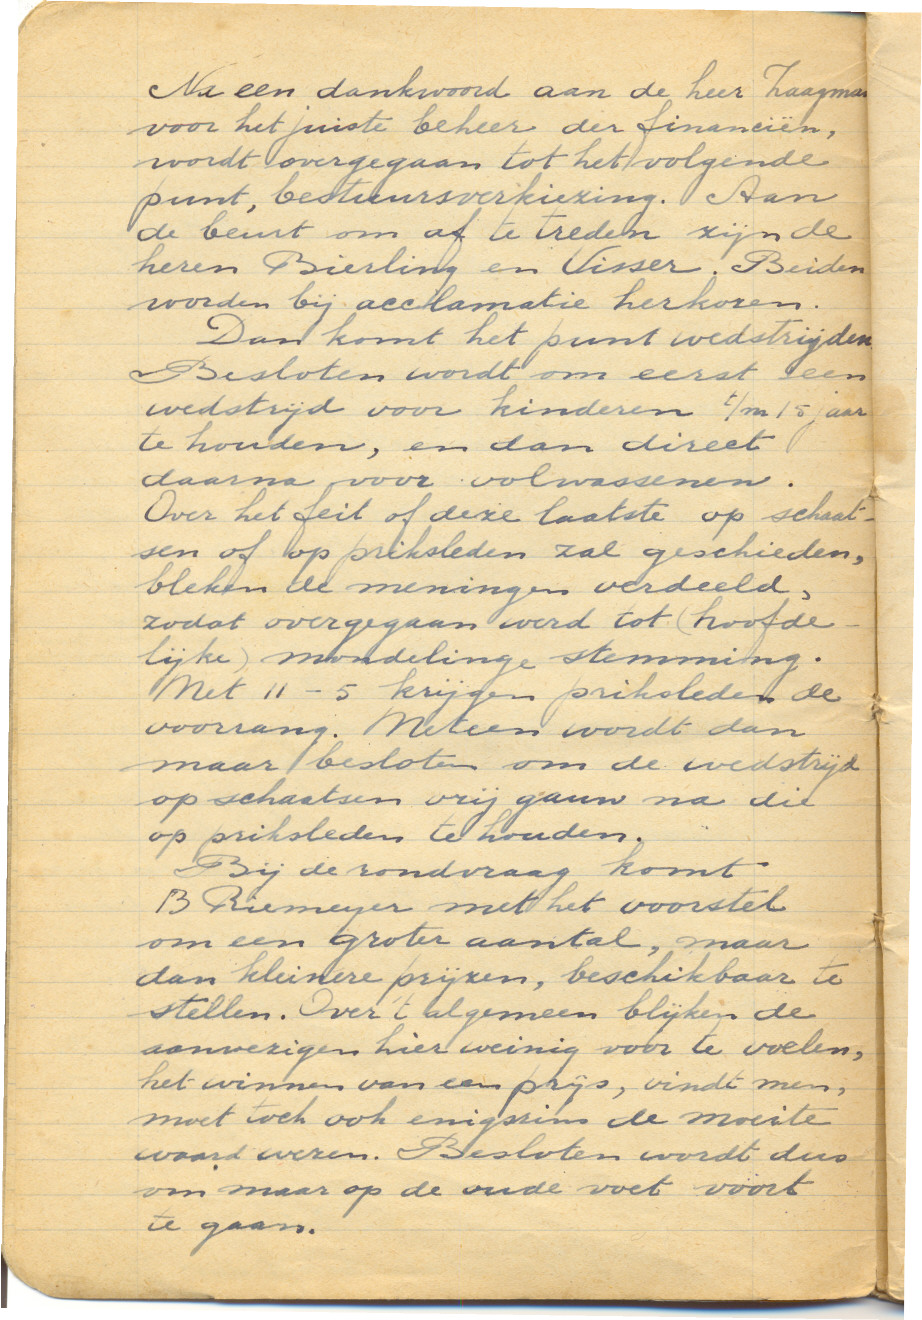 Na een dankwoord aan de heer Zaagman
voor het juiste beheer der financiën,
wordt overgegaan tot het volgende
punt, bestuursverkiezing. Aan
de beurt om af te treden zijn de
heren Bierling en Visser. Beiden
worden bij acclamatie herkozen.
Dan komt het punt wedstrijden
Besloten wordt om eerst een
wedstrijd voor kinderen t/m 15 jaar
te houden, en dan direct
daarna voor volwassenen.
Over het feit of deze laatste op schaat-
sen of op priksleden zal geschieden,
bleken de meningen verdeeld,
zodat overgegaan werd tot (hoofde-
lijke) mondelinge stemming.
Met 11 - 5 krijgen priksleden de
voorrang. Meteen wordt dan
maar besloten om de wedstrijd
op schaatsen vrij gauw na die
op priksleden te houden.
Bij de rondvraag komt
B Riemeyer met het voorstel
om een groter aantal, maar
dan kleinere prijzen, beschikbaar te
stellen. Over 't algemeen blijken de
aanwezigen hier weinig voor te voelen,
het winnen van een prijs, vindt men,
moet toch ook enigszins de moeite
waard wezen. Besloten wordt dus
om maar op de oude voet voort
te gaan.